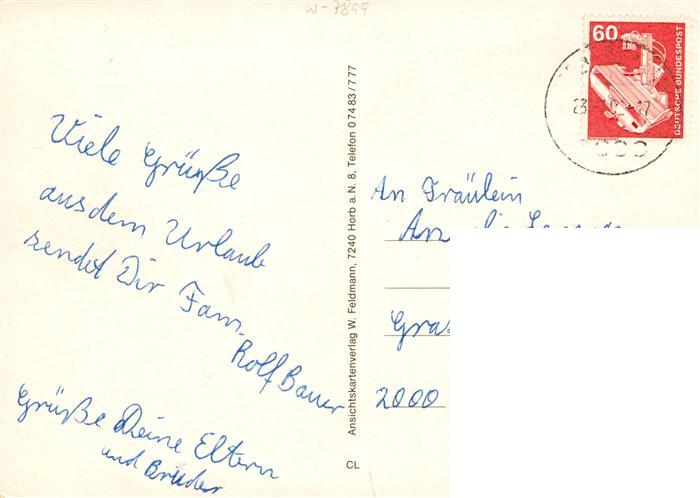 W-7899
60
DEUTSCHE BUNDESPOST
Viele Grüße
aus dem Urlaub
sendet Dir Fam.
Rolf Bauer
Grüße Deine Eltern
und Bruder
Ansichtskartenverlag W. Feldmann, 7240 Horb a. N. 8, Telefon 0 74 83 / 7 77
CL
An Fräulein
2000